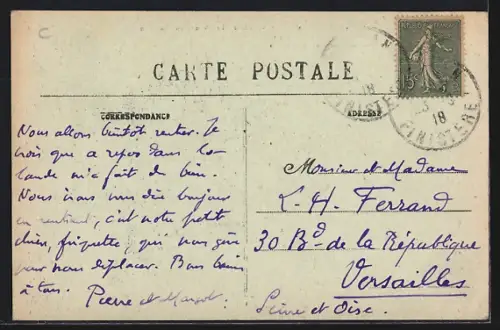 CARTE POSTALE
CORRESPONDANCE
ADRESSE
Nous allons bientôt rentrer. Je
crois que ce repos dans la
lande m'a fait du bien.
Nous irons vous dire bonjour
en rentrant, c'est notre petit
chien, friquette, qui nous gêne
pour nous déplacer. Bons baisers
à tous.
Pierre et Margot.
Monsieur et Madame
L. H. Ferrand
30 Bd de la République
Versailles
Seine et Oise.
15c
18
FINISTERE
18
FINISTERE